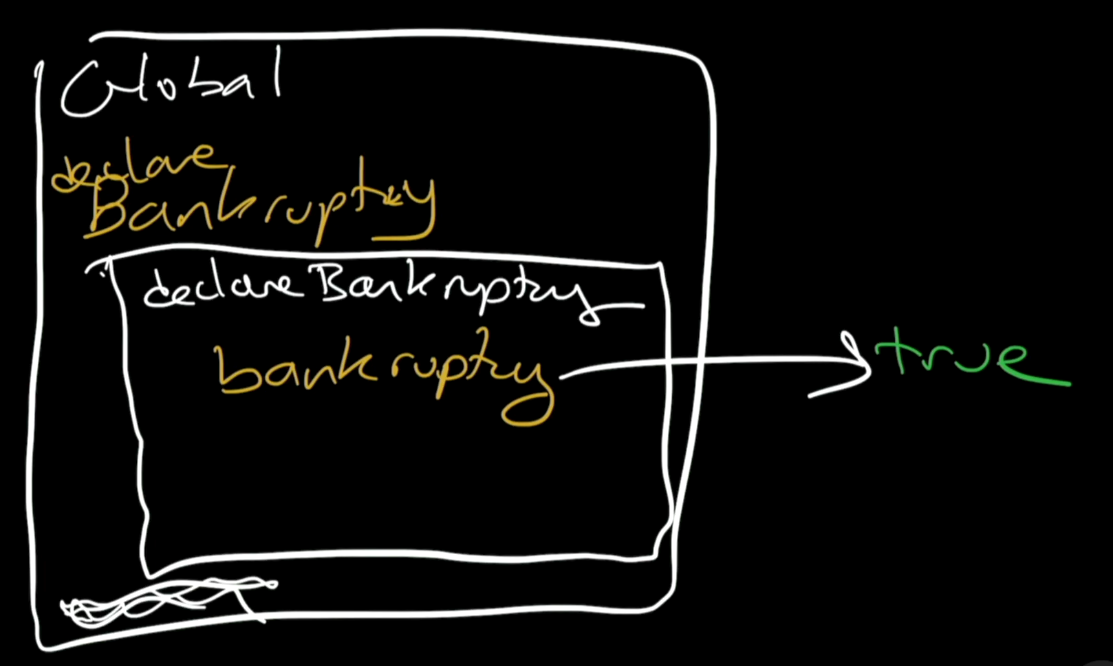 Global
declare
Bankruptcy
declareBankruptcy
bankruptcy
true